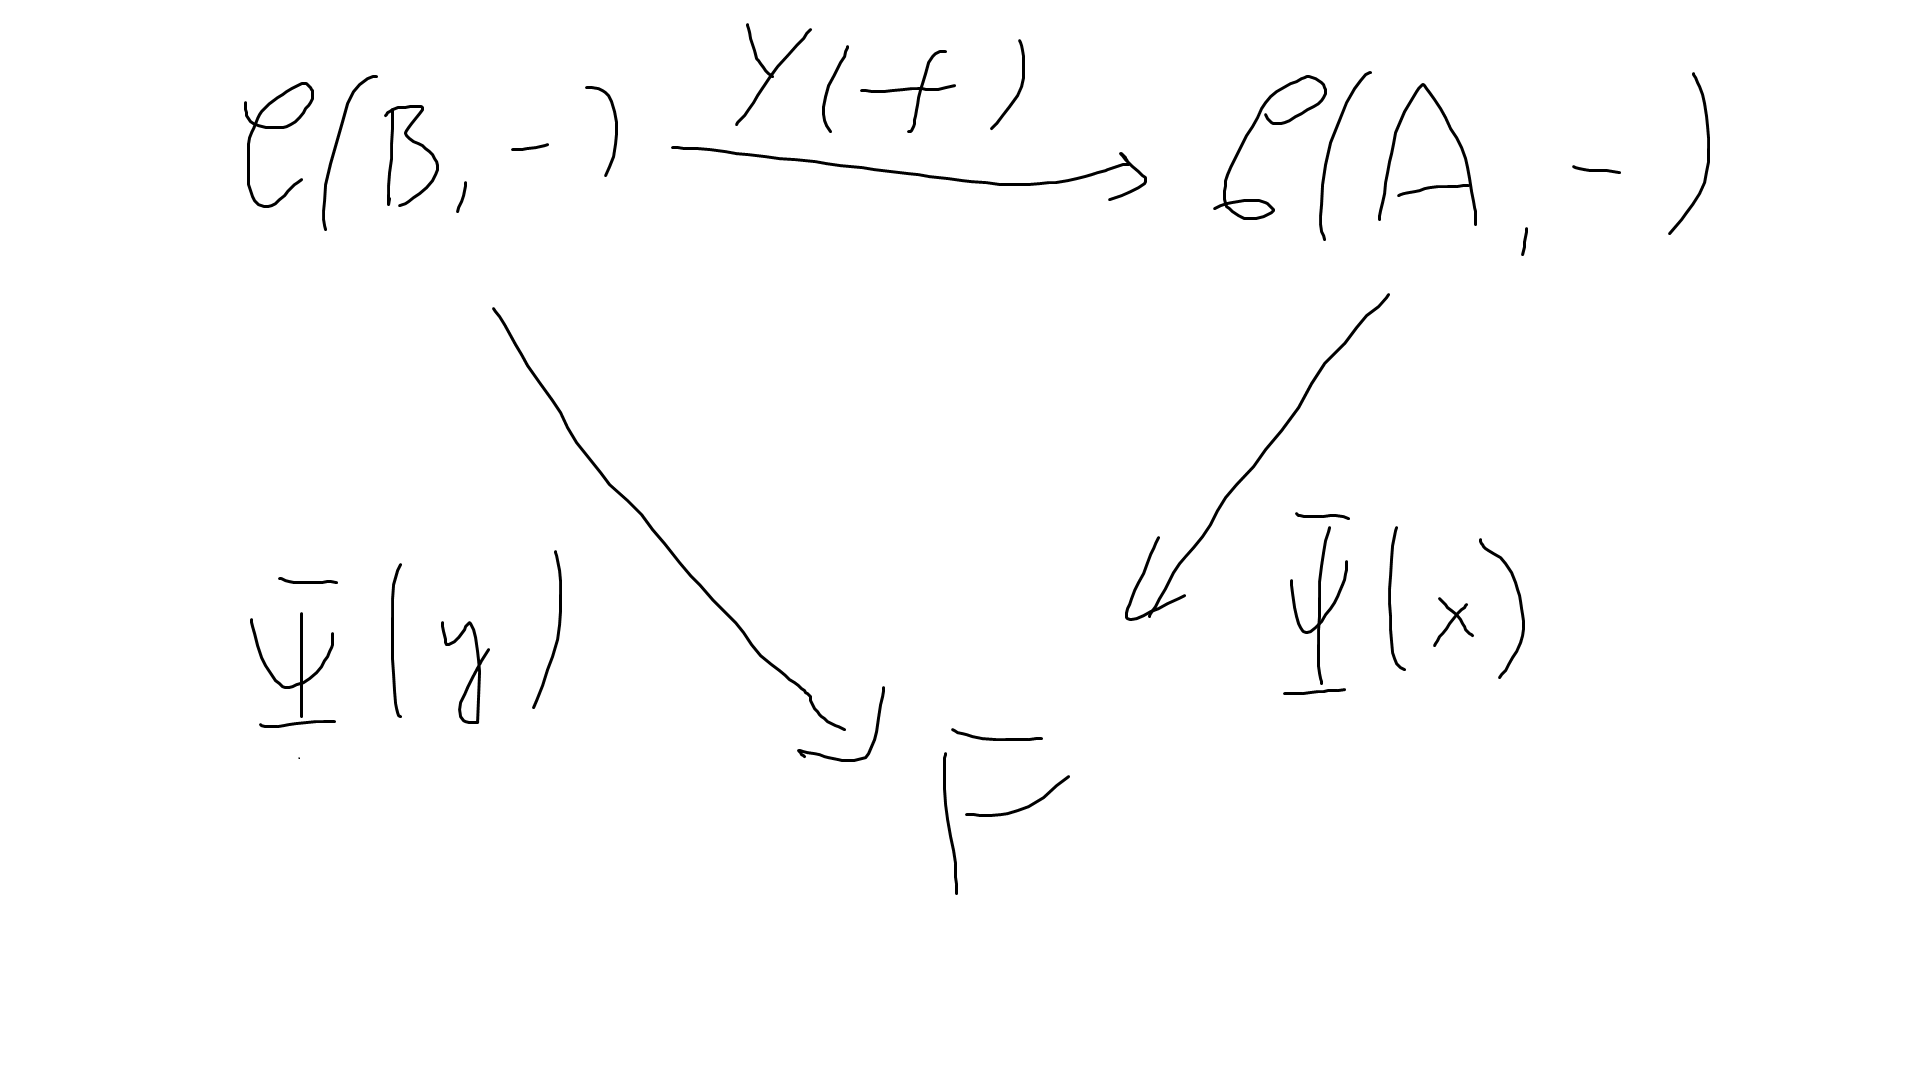 𝒞(B, −) Y(f) 𝒞(A, −)
Ψ(y) Ψ(x)
F